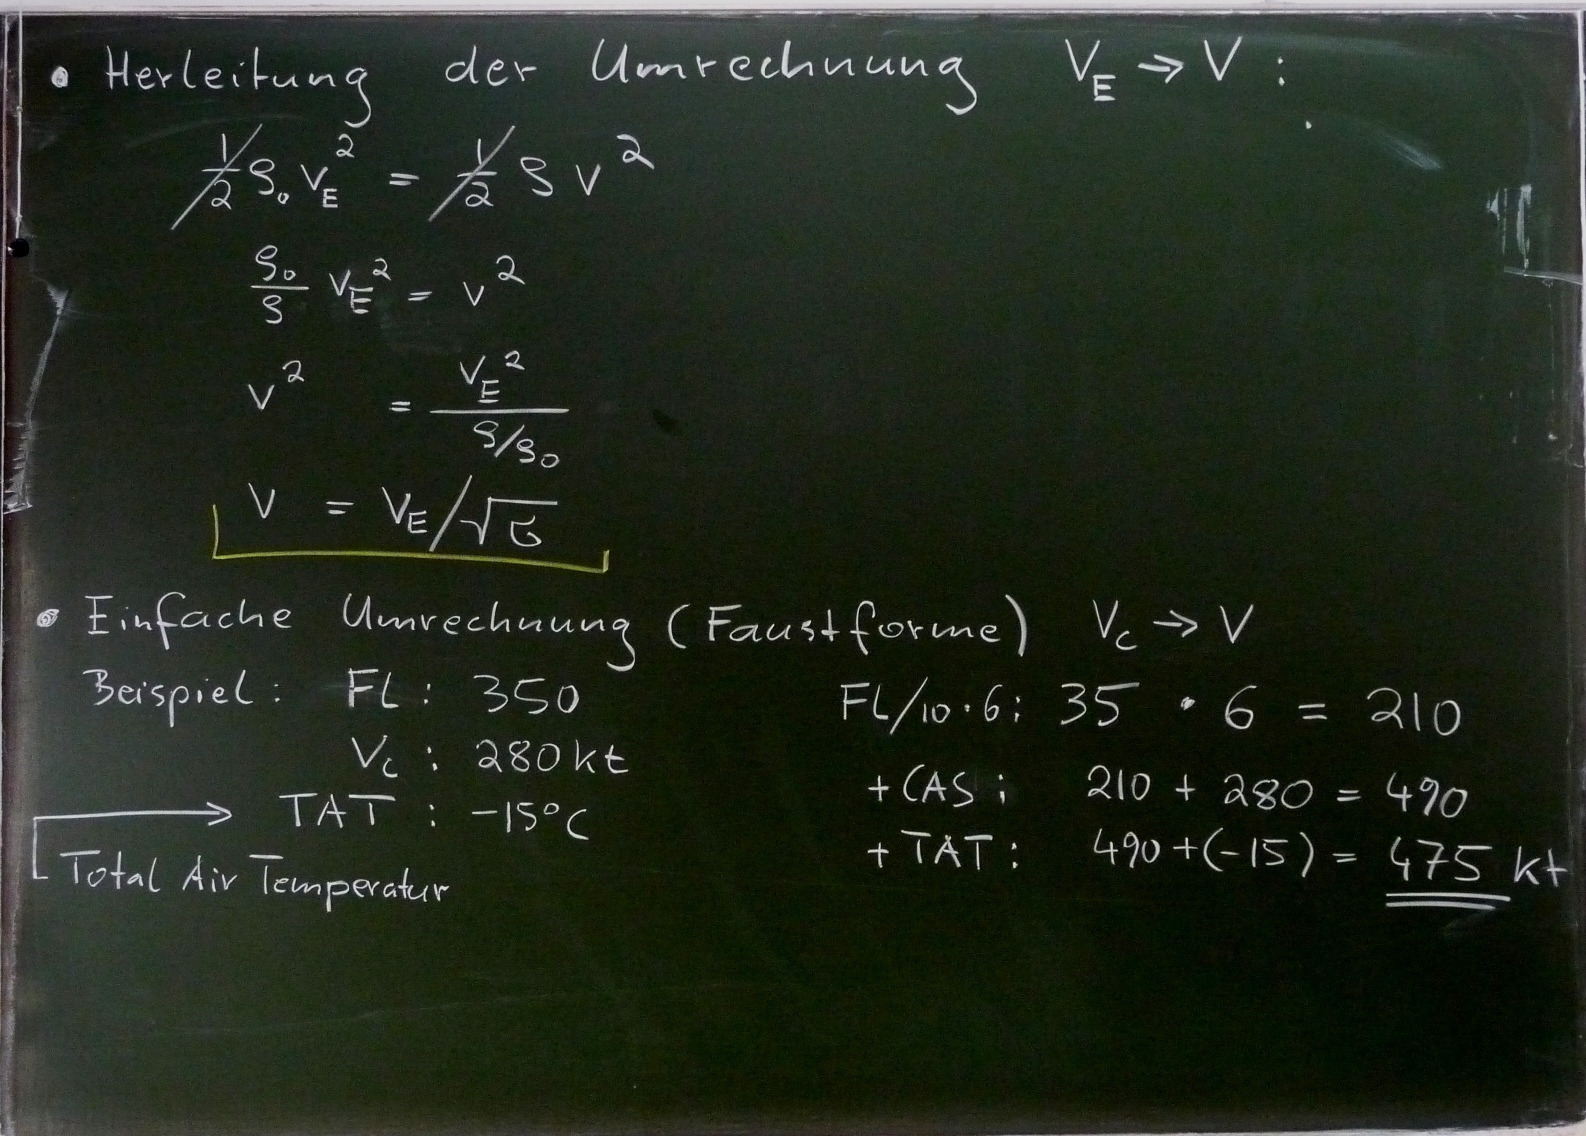 • Herleitung der Umrechnung V_E → V :
1/2 ρ₀ V_E² = 1/2 ρ V²
ρ₀/ρ V_E² = V²
V² = V_E² / (ρ/ρ₀)
V = V_E/√σ
• Einfache Umrechnung (Faustforme) V_c → V
Beispiel: FL: 350
V_c : 280 kt
TAT : -15°C
Total Air Temperatur
FL/10 · 6: 35 · 6 = 210
+ CAS: 210 + 280 = 490
+ TAT: 490 + (-15) = 475 kt